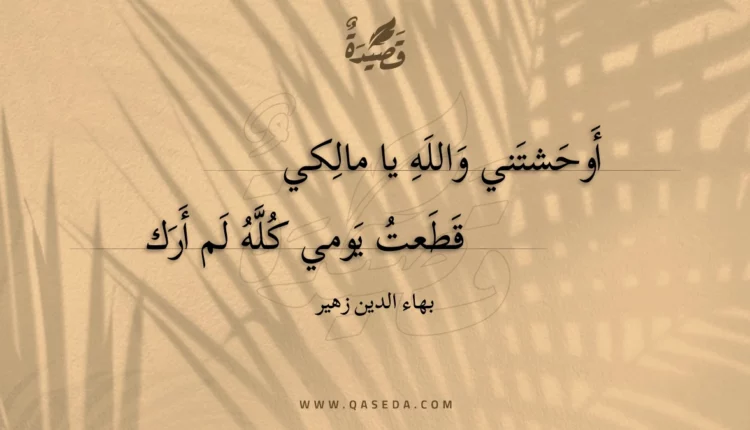 قَصِيدَةٌ
أَوحَشتَني وَاللَهِ يا مالِكي
قَطَعتُ يَومي كُلَّهُ لَم أَرَك
بهاء الدين زهير
WWW.QASEDA.COM